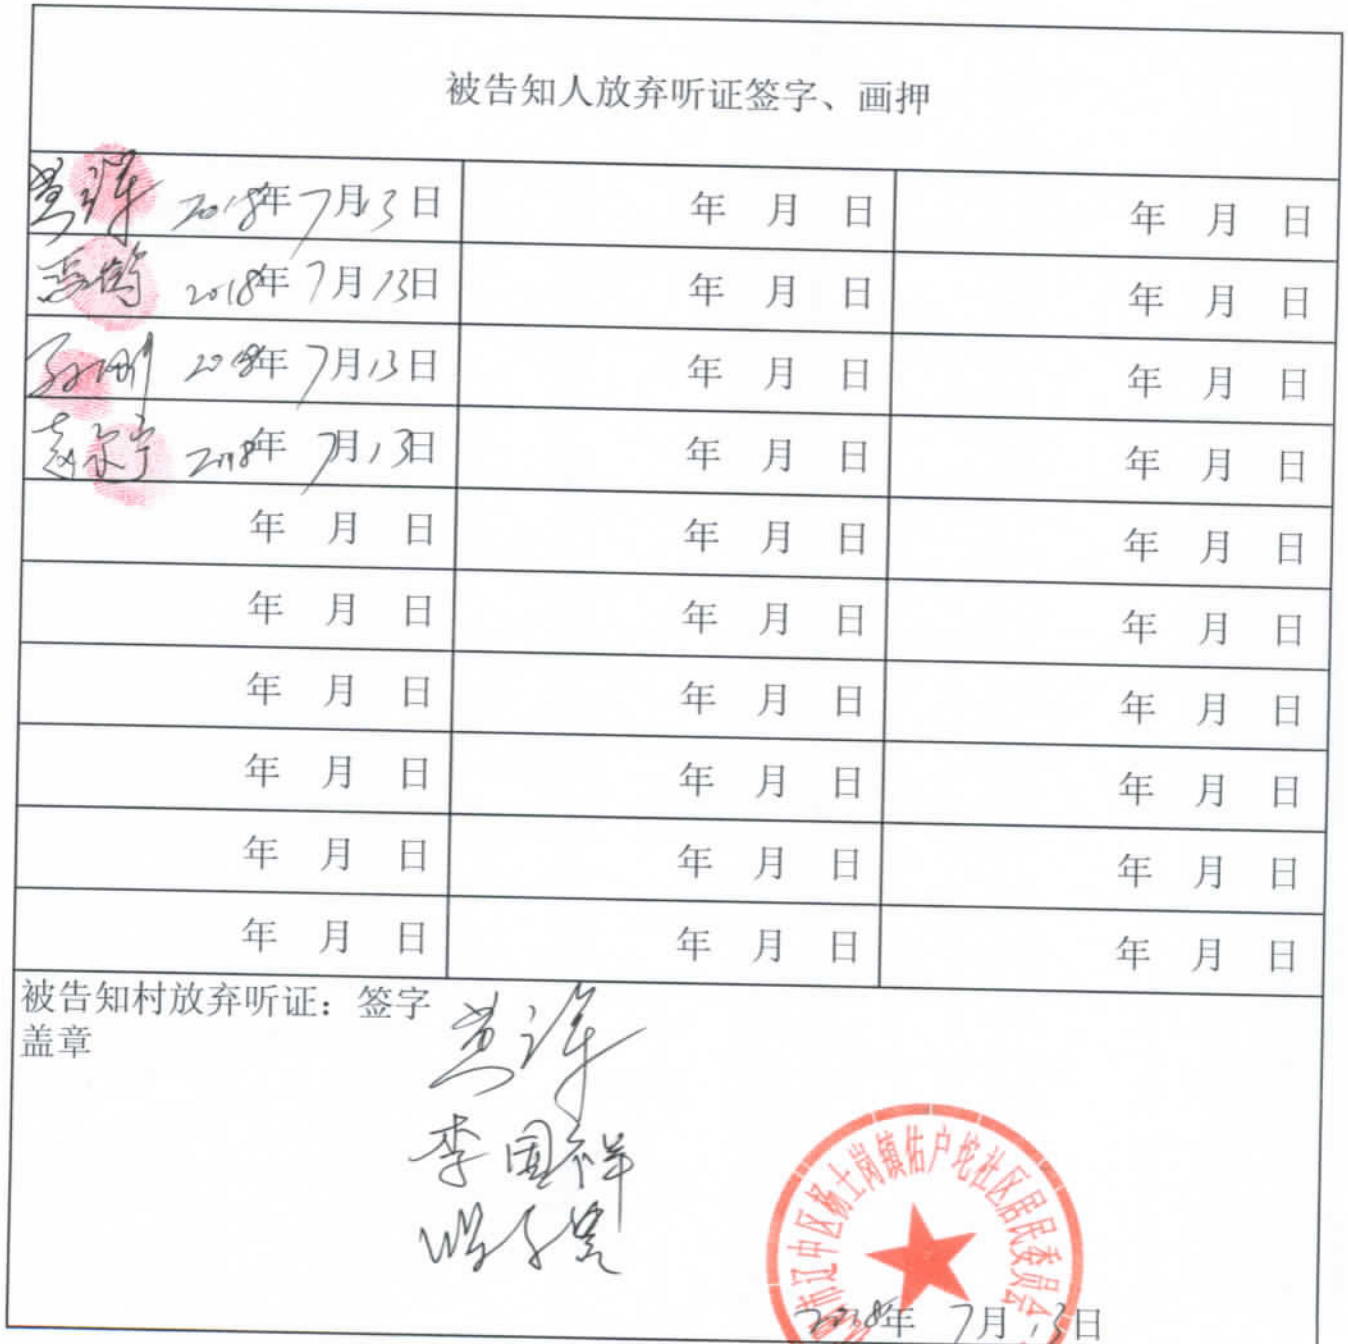 被告知人放弃听证签字、画押
2018年7月13日 年 月 日 年 月 日
2018年7月13日 年 月 日 年 月 日
2018年7月13日 年 月 日 年 月 日
2018年7月13日 年 月 日 年 月 日
年 月 日 年 月 日 年 月 日
年 月 日 年 月 日 年 月 日
年 月 日 年 月 日 年 月 日
年 月 日 年 月 日 年 月 日
年 月 日 年 月 日 年 月 日
年 月 日 年 月 日 年 月 日
被告知村放弃听证：签字
盖章
李国祥
市辽中区杨士岗镇佑户坨社区居民委员会
2018年7月13日